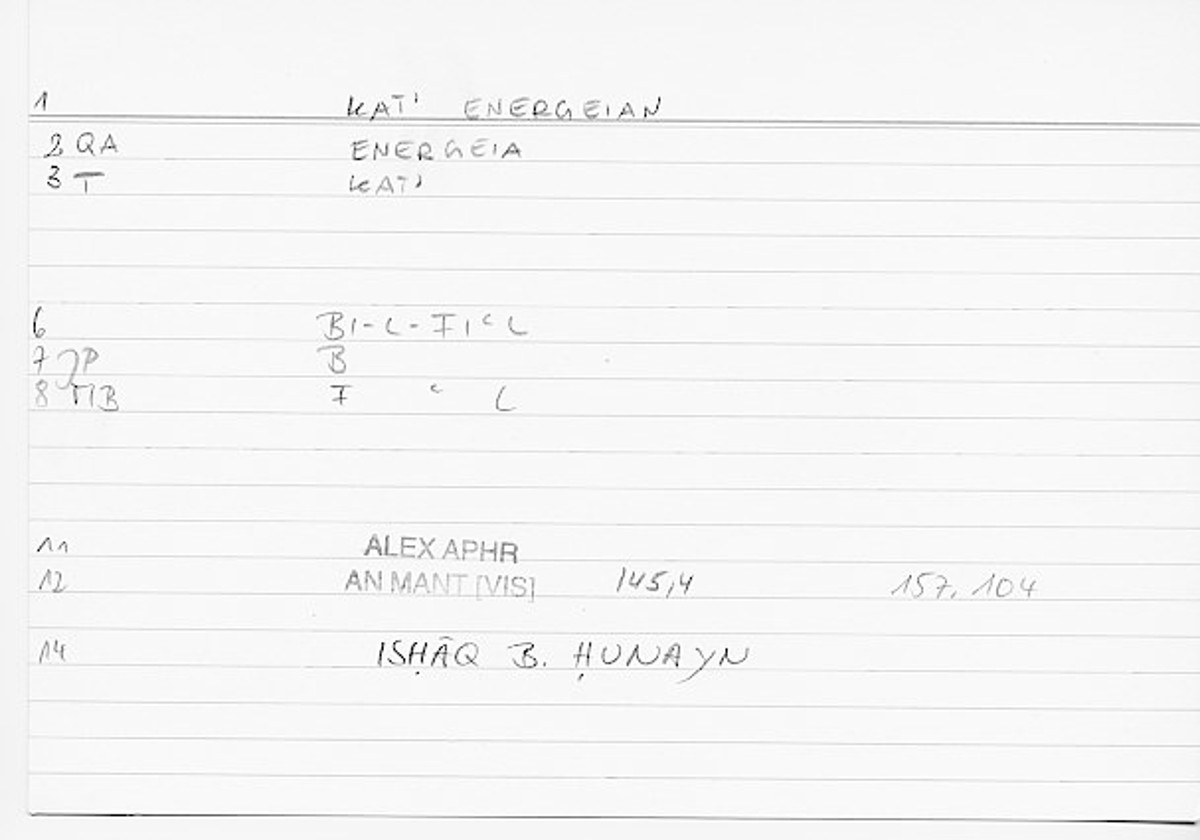 1 KAT' ENERGEIAN
2 QA ENERGEIA
3 T KAT'
6 BI-L-FIʿL
7 JP B
8 TIB F ʿ L
11 ALEX APHR
12 AN MANT [VIS] 145,4 157, 104
14 ISḤĀQ B. ḤUNAYN